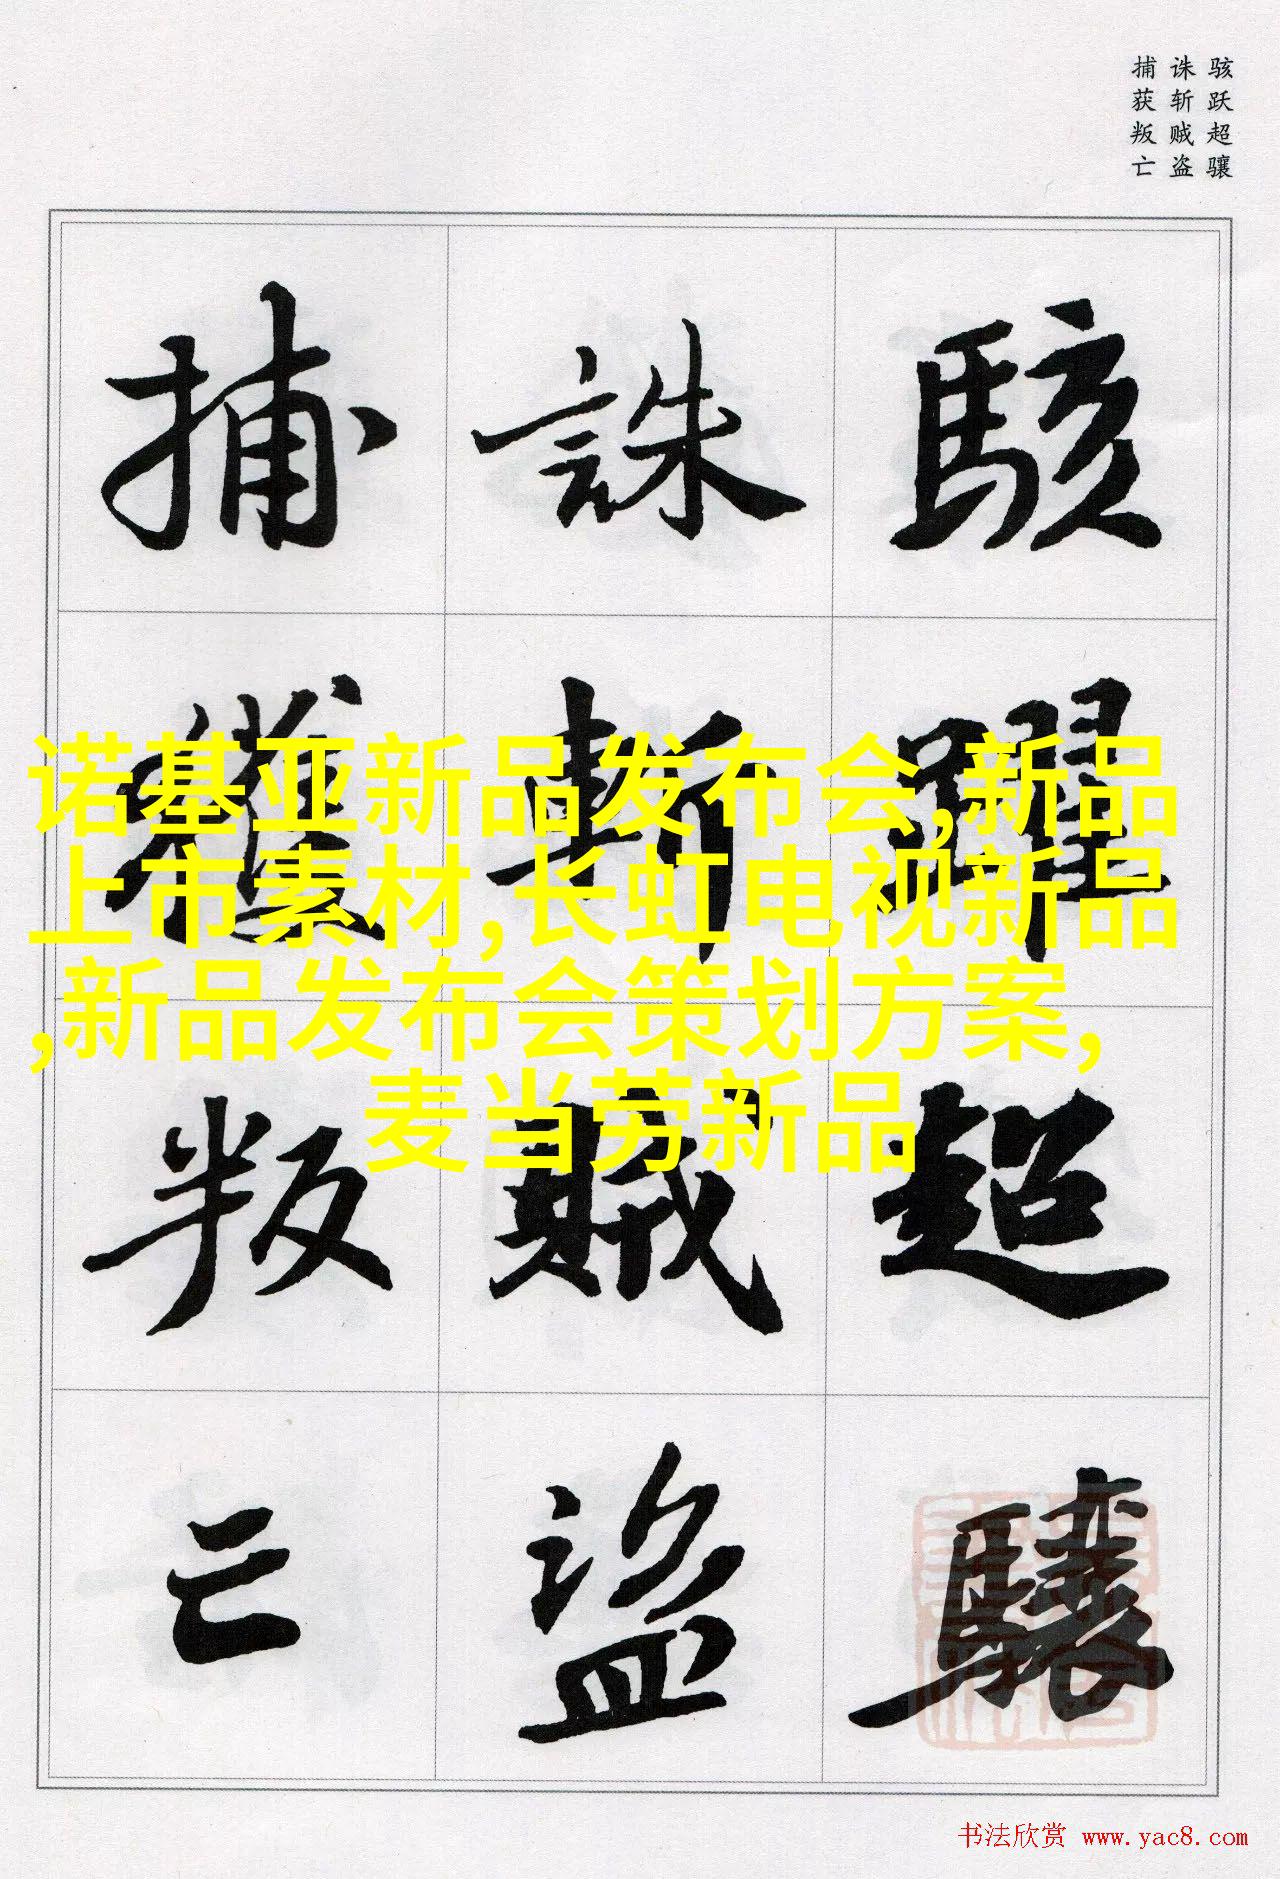 骇跃超骧
诛斩贼盗
捕获叛亡
駭躍超驤
誅斬賊盜
捕獲叛亡
诺基亚新品发布会,新品
上市素材,长虹电视新品
,新品发布会策划方案,
麦当劳新品
书法欣赏 www.yac8.com